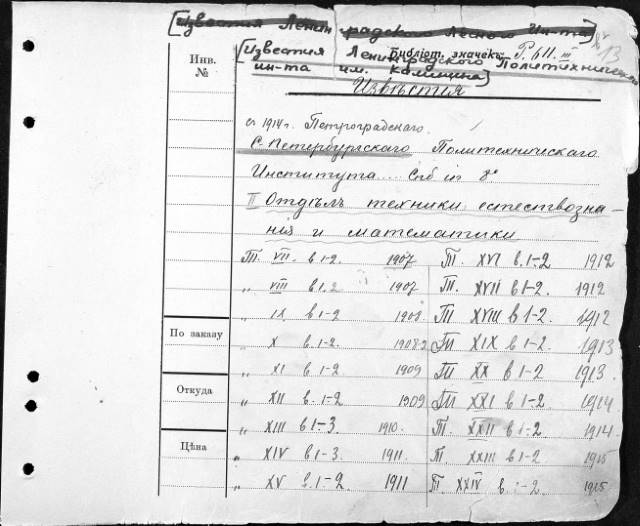 [Известия Ленинградского Лесного Ин-та]
Инв.
№
Библіот. значекъ P. 611. III
13
[Известия Ленинградского Политехнического
ин-та им. Калинина]
Извѣстія
съ 1914 г. Петроградскаго.
С. Петербургскаго Политехническаго
Института.... Спб in 8°
II Отдѣлъ техники, естествозна-
нія и математики
Т. VII. в 1-2. 1907
„ VIII в 1.2 1907
„ IX в 1-2 1908.
„ X в. 1-2. 1908
„ XI в. 1-2 1909
„ XII в. 1-2 1909
„ XIII в 1-3 1910.
„ XIV в 1-3. 1911.
„ XV в. 1-2 1911
Т. XVI в. 1-2 1912
Т. XVII в 1-2 1912
Т XVIII в 1-2 1912
Т XIX в 1-2 1913
Т XX в 1-2 1913.
Т XXI в 1-2. 1914
Т. XXII в 1-2 1914.
Т XXIII в 1-2 1915
Т. XXIV в. 1-2 1915
По заказу
Откуда
Цѣна